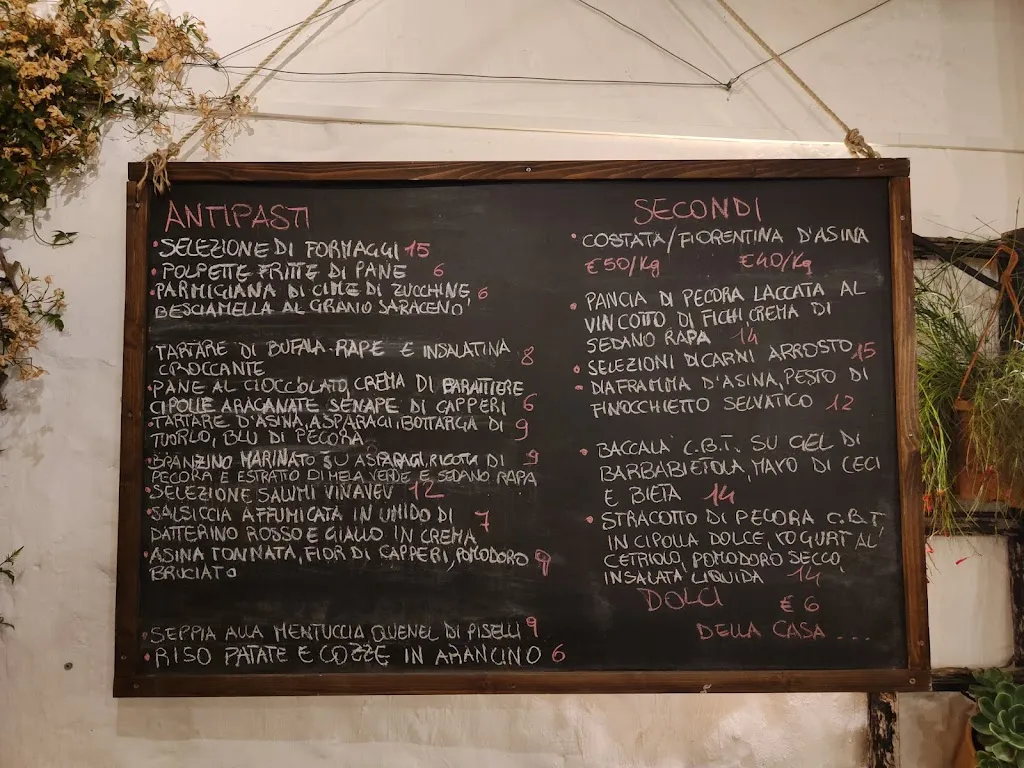 ANTIPASTI
• SELEZIONE DI FORMAGGI 15
• POLPETTE FRITTE DI PANE 6
• PARMIGIANA DI CIME DI ZUCCHINE, 6
BESCIAMELLA AL GRANO SARACENO
TARTARE DI BUFALA RAPE E INSALATINA 8
CROCCANTE
• PANE AL CIOCCOLATO, CREMA DI BARATTIERE
CIPOLLE ARAGANATE SENAPE DI CAPPERI 6
• TARTARE D'ASINA, ASPARAGI, BOTTARGA DI 9
TUORLO, BLU DI PECORA
• BRANZINO MARINATO SU ASPARAGI, RICOTA DI 9
PECORA E ESTRATTO DI MELA VERDE E SEDANO RAPA
• SELEZIONE SALUMI VINAVEV 12
• SALSICCIA AFFUMICATA IN UMIDO DI 7
DATTERINO ROSSO E GIALLO IN CREMA
• ASINA TONNATA, FIOR DI CAPPERI, POMODORO 9
BRUCIATO
• SEPPIA ALLA MENTUCCIA QUENEL DI PISELLI 9
• RISO PATATE E COZZE IN ARANCINO 6
SECONDI
• COSTATA/FIORENTINA D'ASINA
€50/Kg €40/Kg
• PANCIA DI PECORA LACCATA AL
VINCOTTO DI FICHI CREMA DI
SEDANO RAPA 14
• SELEZIONI DI CARNI ARROSTO 15
• DIAFRAMMA D'ASINA, PESTO DI
FINOCCHIETTO SELVATICO 12
• BACCALA' C.B.T. SU GEL DI
BARBABIETOLA, MAYO DI CECI
E BIETA 14
• STRACOTTO DI PECORA C.B.T,
IN CIPOLLA DOLCE, YOGURT AL
CETRIOLO, POMODORO SECCO,
INSALATA LIQUIDA 14
DOLCI € 6
DELLA CASA ....